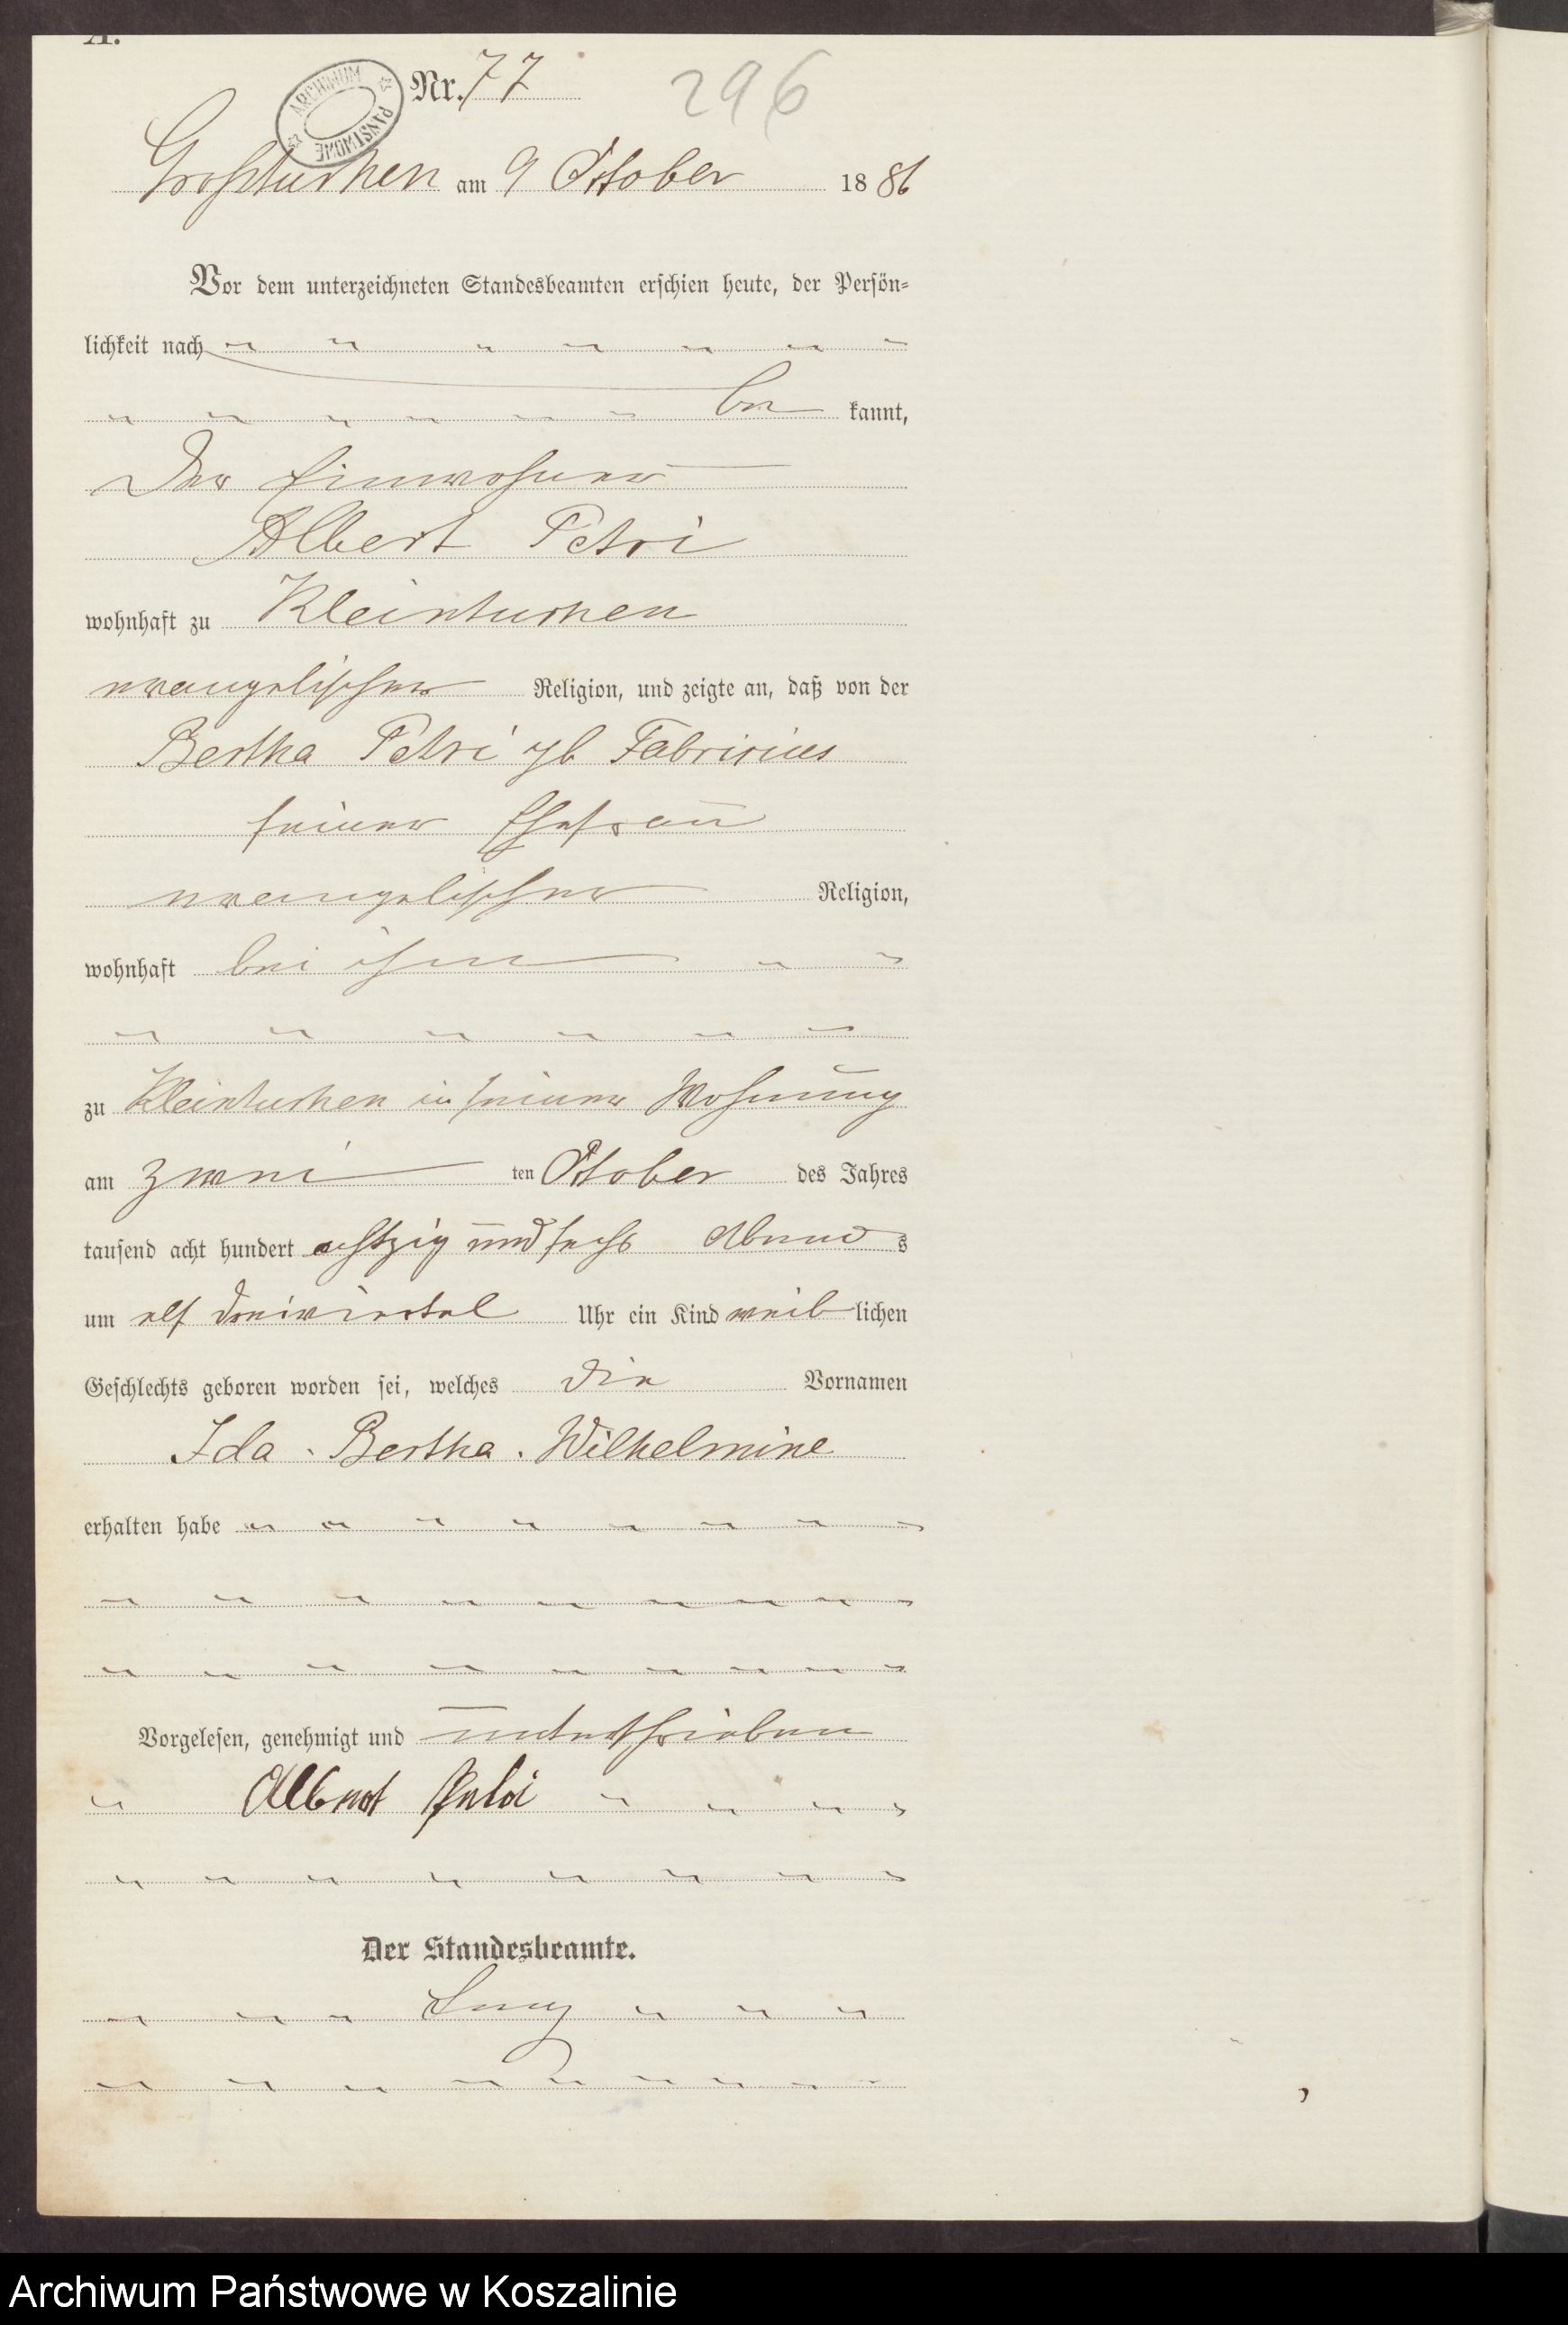 A.
ARCHIWUM PAŃSTWOWE
Nr. 77
296
Großtuchen am 9 October 1886
Vor dem unterzeichneten Standesbeamten erschien heute, der Persön=
lichkeit nach
be kannt,
Der Einwohner
Albert Petri
wohnhaft zu Kleintuchen
evangelischer Religion, und zeigte an, daß von der
Bertha Petri gb Fabricius
seiner Ehefrau
evangelischer Religion,
wohnhaft bei ihm
zu Kleintuchen in seiner Wohnung
am zwei ten October des Jahres
tausend acht hundert achtzig und sechs Abend s
um elf dreiviertel Uhr ein Kind weib lichen
Geschlechts geboren worden sei, welches die Vornamen
Ida. Bertha. Wilhelmine
erhalten habe
Vorgelesen, genehmigt und unterschrieben
Albert Petri
Der Standesbeamte.
Archiwum Państwowe w Koszalinie